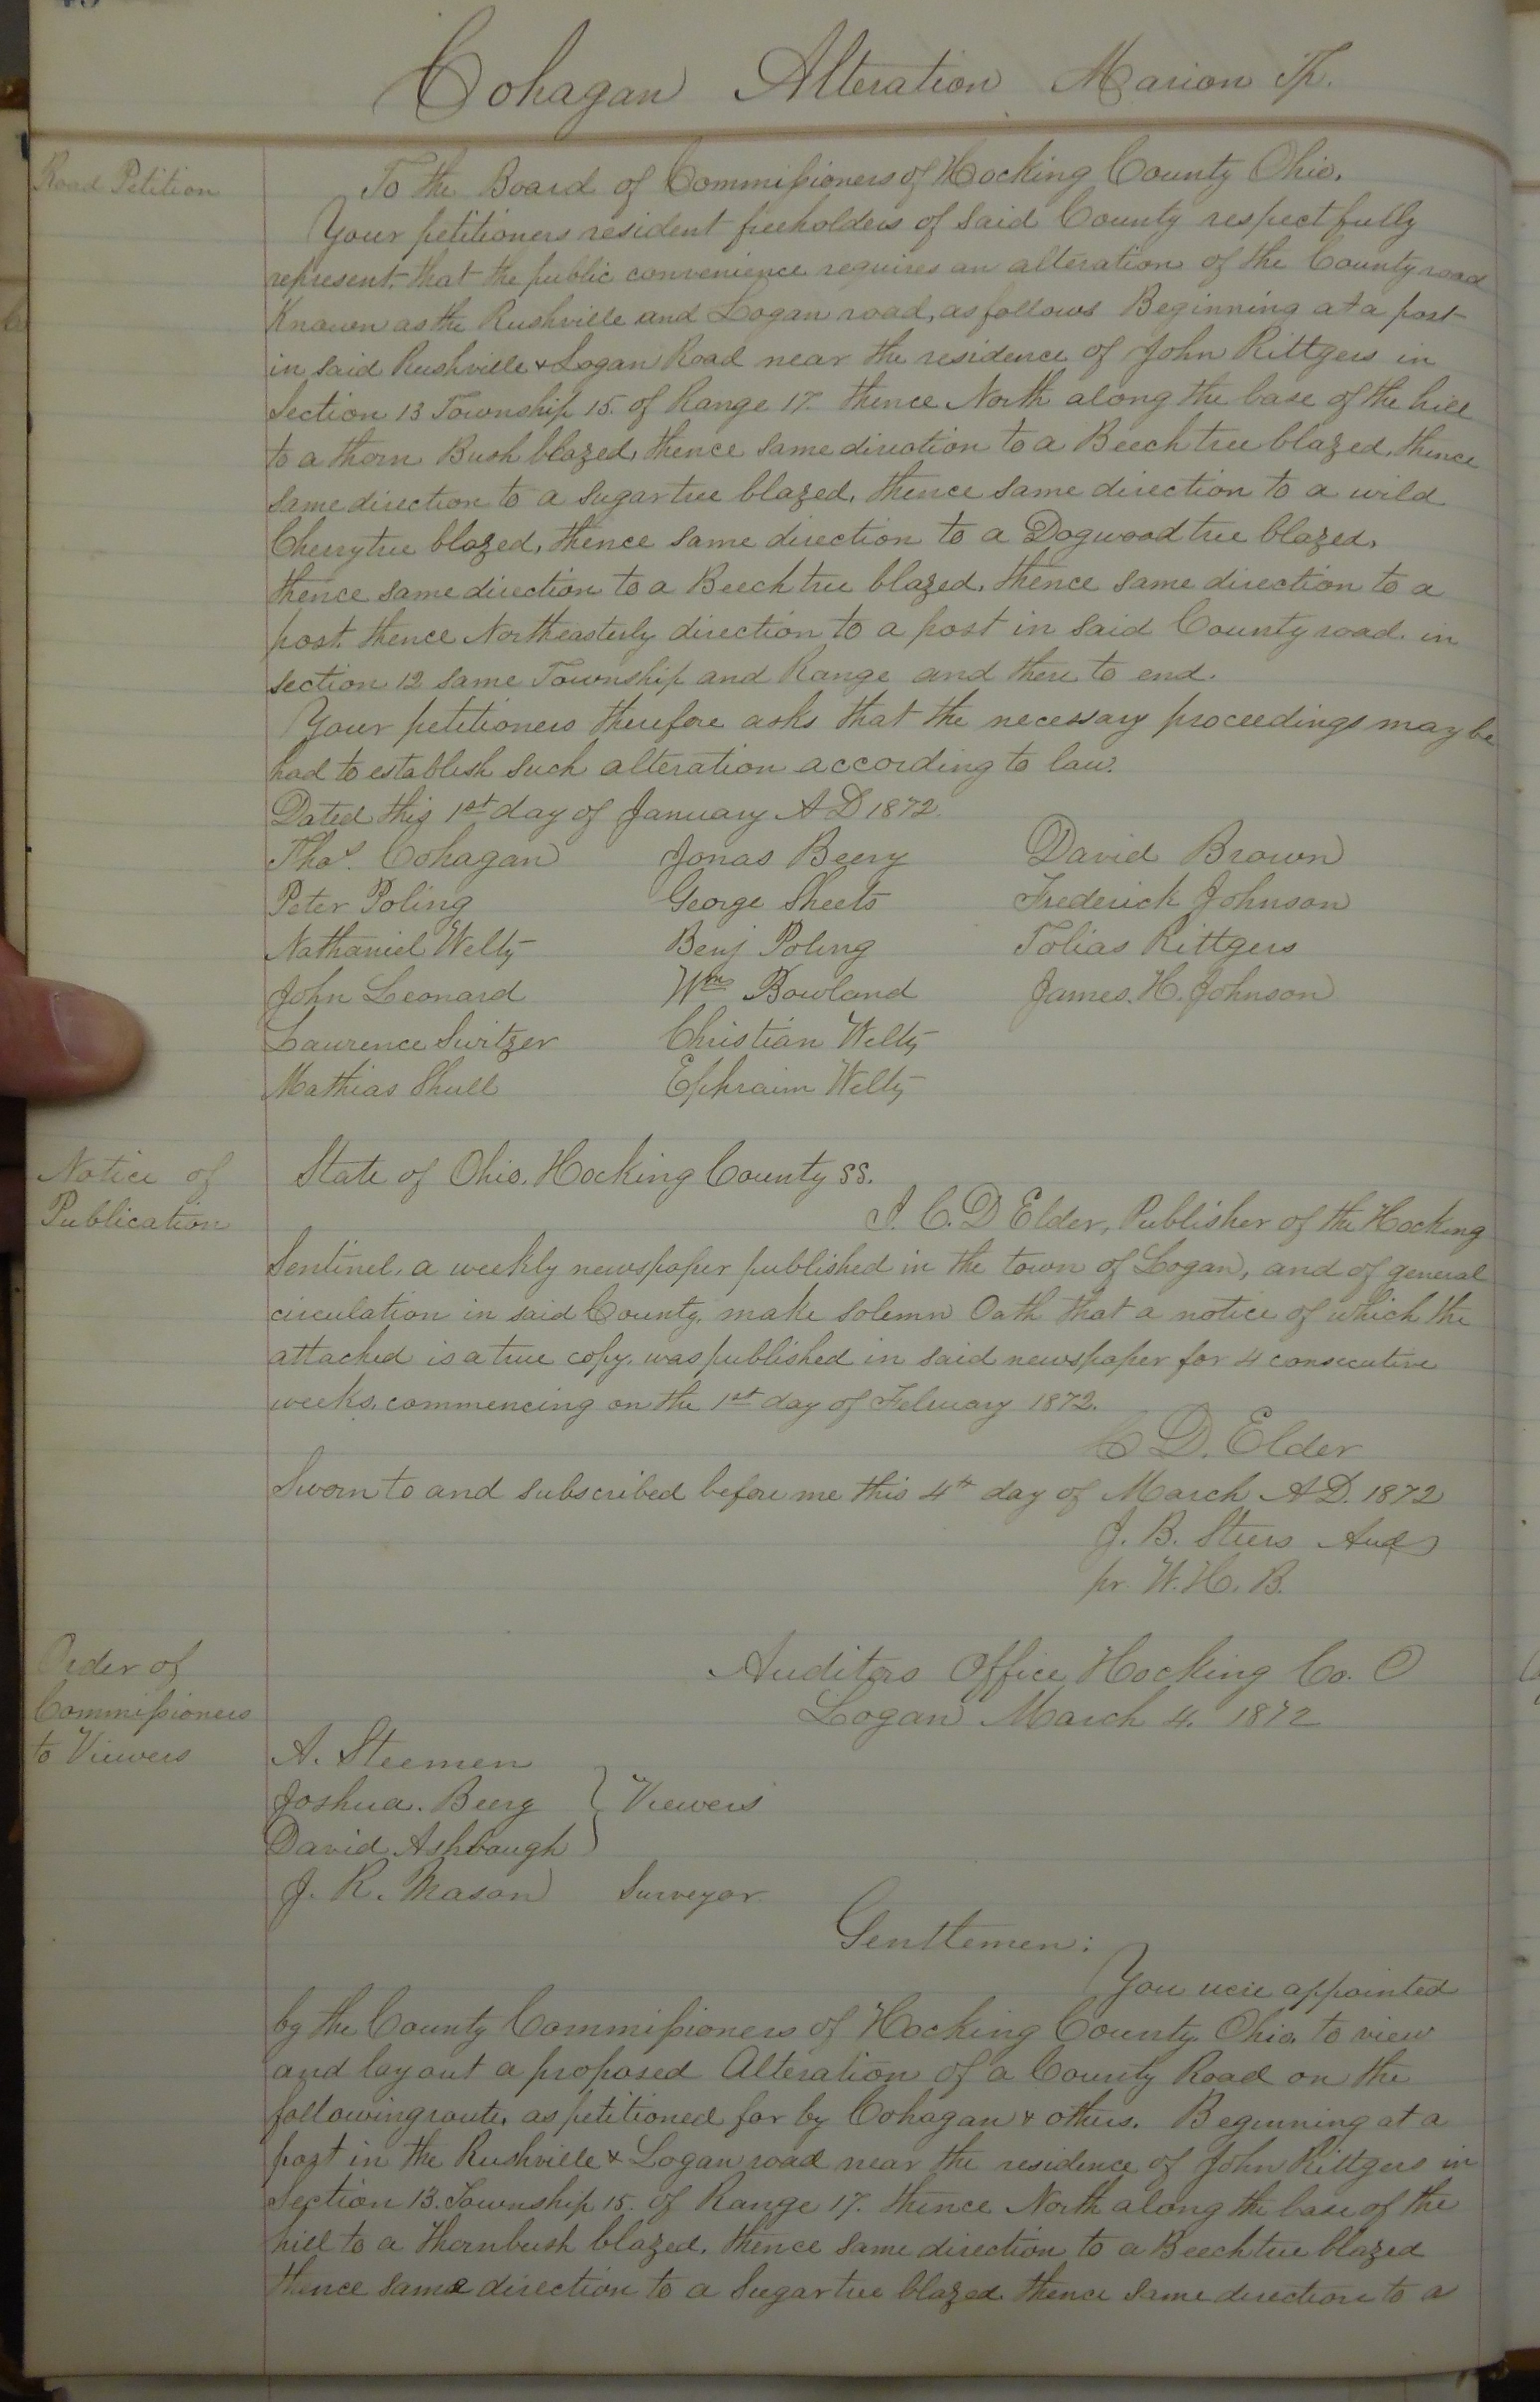 Cohagan Alteration Marion Tp.
Road Petition
To the Board of Commissioners of Hocking County Ohio.
Your petitioners resident freeholders of said County respectfully
represent, that the public convenience requires an alteration of the County road
Known as the Rushville and Logan road, as follows Beginning at a post
in said Rushville & Logan Road near the residence of John Rittgers in
Section 13 Township 15. of Range 17. thence North along the base of the hill
to a thorn Bush blazed, thence same direction to a Beech tree blazed, thence
same direction to a sugar tree blazed, thence same direction to a wild
Cherry tree blazed, thence same direction to a Dogwood tree blazed,
thence same direction to a Beech tree blazed, thence same direction to a
post, thence Northeasterly direction to a post in said County road. in
section 12 same Township and Range and there to end.
Your petitioners therefore asks that the necessary proceedings may be
had to establish such alteration according to law.
Dated this 1st day of January A D 1872.
Thos. Cohagan Jonas Beery David Brown
Peter Poling George Sheets Frederick Johnson
Nathaniel Welty Benj Poling Tobias Rittgers
John Leonard Wm Bowland James. H. Johnson
Laurence Switzer Christian Welty
Mathias Shull Ephraim Welty
Notice of
Publication
State of Ohio. Hocking County SS.
I. C. D Elder, Publisher of the Hocking
Sentinel, a weekly newspaper published in the town of Logan, and of general
circulation in said County, make solemn Oath that a notice of which the
attached is a true copy, was published in said newspaper for 4 consecutive
weeks, commencing on the 1st day of February 1872.
C D. Elder
Sworn to and subscribed before me this 4th day of March A D. 1872
J. B. Steers Aud
pr. W. H. B.
Order of
Commissioners
to Viewers
Auditors Office Hocking Co. O
Logan March 4. 1872
A. Steemen
Joshua. Beery } Viewers
David Ashbaugh
J. R. Mason Surveyor.
Gentlemen:
You were appointed
by the County Commissioners of Hocking County. Ohio. to view
and lay out a proposed Alteration of a County Road on the
following route, as petitioned for by Cohagan & others. Beginning at a
post in the Rushville & Logan road near the residence of John Rittgers in
Section 13. Township 15. of Range 17. thence North along the base of the
hill to a thornbush blazed, thence same direction to a Beech tree blazed
thence same direction to a Sugar tree blazed. thence same direction to a